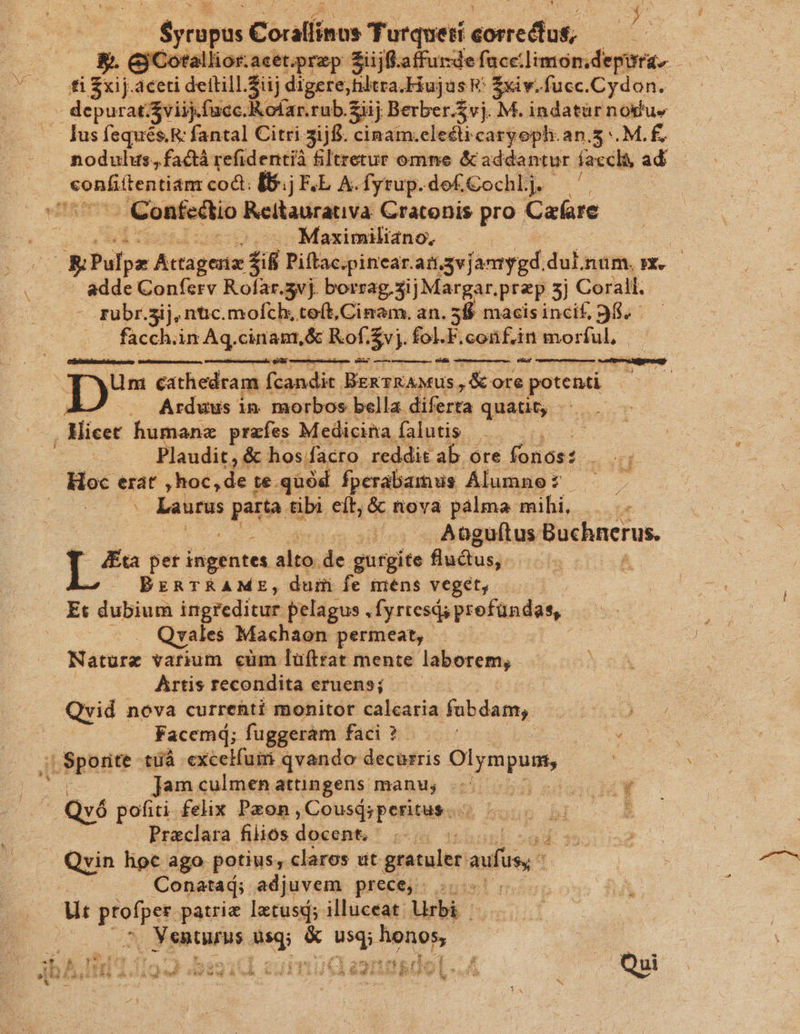 Syrupus Corallinus Turqueti correctus,
℞. @Corallior. acet. præp ℥iijß. affunde succ. limon. depura-
ti ℥xij. aceti destill. ℥iij digere, filtra. Hujus ℞ ℥xiv. succ. Cydon.
depurat. ℥viij. succ. Rosar. rub. ℥iij Berber. ℥vj. M. indatur nodu-
lus sequēs. ℞ santal Citri ʒijß. cinam. electi caryoph. an. M. f.
nodulus, factâ residentiâ filtretur omne & addantur sacch, ad
consistentiam coct. ℔.j F.L A. syrup. dos. Cochl.j.
Confectio Restaurativa Cratonis pro Cæsare
Maximiliano.
℞ Pulpæ Attagenæ ℥iß Pistac. pinear. an. ʒvj amygd. dul. num.
adde Conserv Rosar. ʒvj. borrag. ʒij Margar. præp ʒj Corall.
rubr. ʒij, nuc. mosch, tost, Cinam. an. ʒß macis incis, ℈ß.
sacch. in Aq. cinam, & Ros. ℥vj. sol. F. conf. in morsul.
DUm cathedram scandit BERTRAMUS, & ore potenti
Arduus in morbos bella diserta quatit,
Hicet humanæ præses Medicina salutis
Plaudit, & hos sacro reddit ab ore sonos:
Hoc erat, hoc, de te quòd sperabamus Alumno:
Laurus parta tibi est, & nova palma mihi.
Augustus Buchnerus.
LÆta per ingentes alto de gurgite fluctus,
BERTRAME, dum se mens veget,
Et dubium ingreditur pelagus, syrtesq; profundas,
Qvales Machaon permeat,
Naturæ varium cùm lustrat mente laborem,
Artis recondita eruens;
Qvid nova currenti monitor calcaria subdam,
Facemq; suggeram faci?
Sponte tuâ excelsum qvando decurris Olympum,
Jam culmen attingens manu,
Qvó positi felix Pæon, Cousq; peritus
Præclara filios docent.
Qvin hoc ago potius, claros ut gratuler ausus,
Conataq; adjuvem prece,
Ut prosper patriæ lætusq; illuceat Urbi
Venturus usq; & usq; honos,
Qui